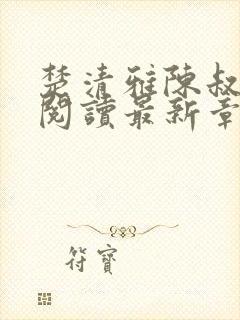 楚清雅陳叔
閱讀最新章
符寶